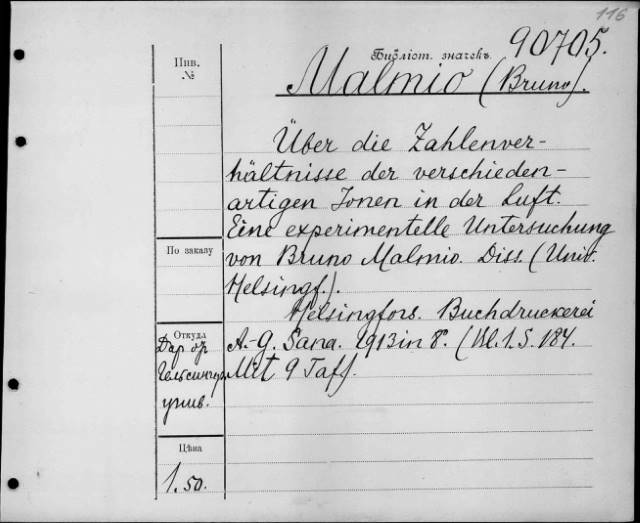 116
90705.
Библіот. значекъ
Инв.
№
Malmio (Bruno).
Über die Zahlenver-
hältnisse der verschieden-
artigen Jonen in der Luft.
Eine experimentelle Untersuchung
По заказу
von Bruno Malmio. Diss. (Univ.
Helsingf.).
Helsingfors. Buchdruckerei
Откуда
A.-G. Sana. 1913 in 8°. (Bl. 1. S. 184.
Mit 9 Taff.
Дар от
Гельсингф.
унив.
Цѣна
1.50.